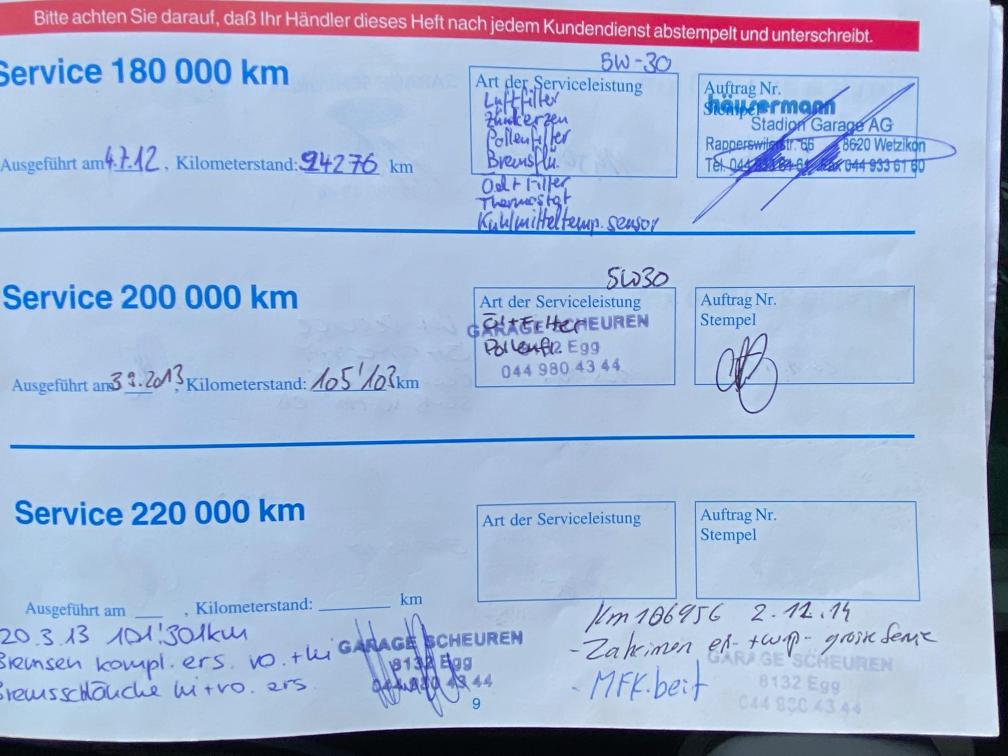 Bitte achten Sie darauf, daß Ihr Händler dieses Heft nach jedem Kundendienst abstempelt und unterschreibt.
Service 180 000 km
5W-30
Art der Serviceleistung
Luftfilter
Zünkerzen
Pollenfilter
Bremsflü.
Oel+Filter
Thermostat
Kühlmitteltemp. sensor
Auftrag Nr.
Stempel
häusermann
Stadion Garage AG
Rapperswilerstr. 66 8620 Wetzikon
Tel. 044 933 61 61 Fax 044 933 61 60
Ausgeführt am 4.7.12 , Kilometerstand: 94276 km
Service 200 000 km
5W30
Art der Serviceleistung
Öl+Filter
Pollenfi
GARAGE SCHEUREN
8132 Egg
044 980 43 44
Auftrag Nr.
Stempel
Ausgeführt am 3.9.2013, Kilometerstand: 105'103 km
Service 220 000 km
Art der Serviceleistung
Auftrag Nr.
Stempel
Ausgeführt am , Kilometerstand: km
20.3.13 101'301km
Bremsen kompl. ers. vo.+hi
Bremsschläuche hi+vo. ers
GARAGE SCHEUREN
8132 Egg
044 980 43 44
Km 106956 2.12.14
- Zahnrimen er. +wp- grosse
- MFK.beit
GARAGE SCHEUREN
8132 Egg
044 980 43 44
9